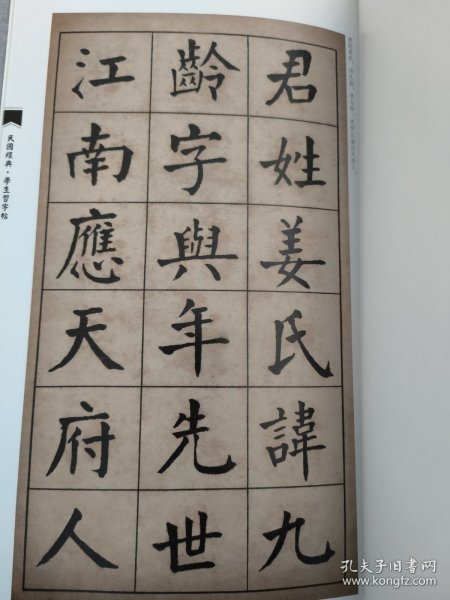 君姓姜氏諱九
齡字與年先世
江南應天府人
民國經典·學生習字帖
孔夫子旧书网
www.kongfz.com